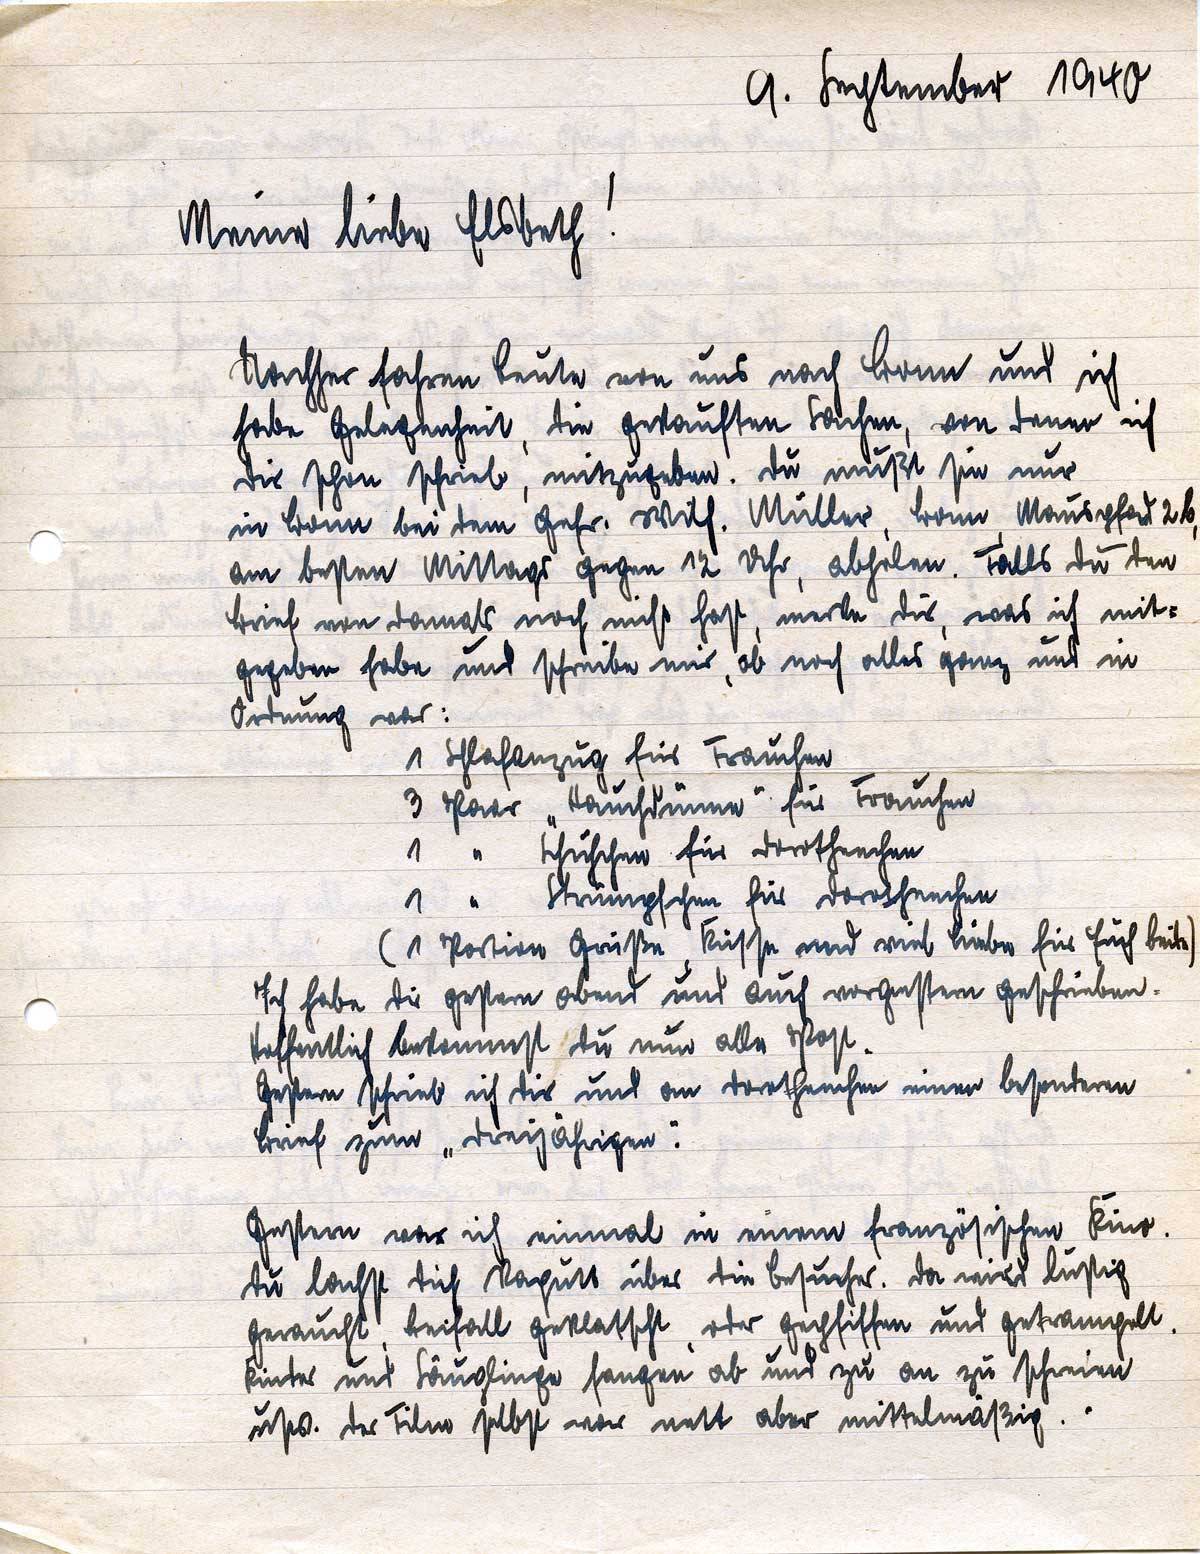 9. September 1940
Meine liebe Elsbeth!
Nachher fahren Leute von uns nach Bonn und ich
habe Gelegenheit, die gekauften Sachen, von denen ich
Dir schon schrieb, mitzugeben. Du mußt sie nur
in Bonn bei dem Gefr. Wilh. Müller, Bonn, Mauspfad 2b,
am besten Mittags gegen 12 Uhr, abholen. Falls Du den
Brief von damals noch nicht hast, merke Dir, was ich mit=
gegeben habe und schreibe mir, ob noch alles ganz und in
Ordnung war:
1 Schlafanzug für Frauchen
3 Paar „Hauchdünne" für Frauchen
1 " Schühchen für Dorotheechen
1 " Strümpfchen für Dorotheechen
(1 Portion Grüße, Küsse und viel Liebe für Euch beide)
Ich habe Dir gestern abend und auch vorgestern geschrieben.
Hoffentlich bekommst Du nun alle Post.
Gestern schrieb ich Dir und an Dorotheechen einen besonderen
Brief zum „Dreijährigen".
Gestern war ich einmal in einem französischen Kino.
Du lachst Dich kaputt über die Besucher. Da wird lustig
geraucht, Beifall geklatscht, oder gepfiffen und getrampelt.
Kinder und Säuglinge fangen ab und zu an zu schreien
usw. Der Film selbst war nett aber mittelmäßig.